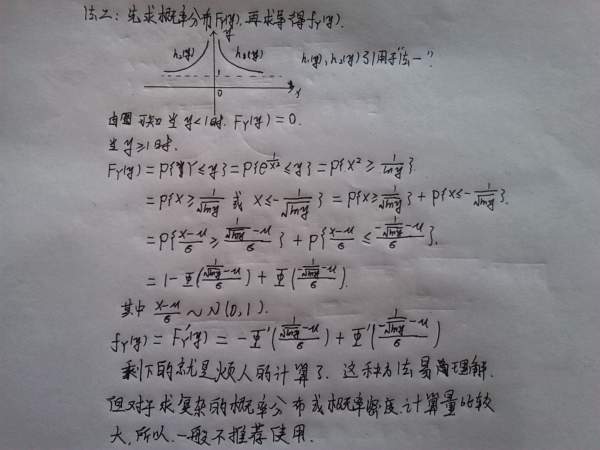 法二：先求概率分布F_Y(y),再求导得f_Y(y).
y
h₁(y) h₂(y) h₁(y), h₂(y)引用于"法一"?
1
0 x
由图可知当y<1时. F_Y(y)=0.
当y≥1时.
F_Y(y)=P{Y≤y}=P{e^{\frac{1}{x^2}}≤y}=P{X²≥\frac{1}{lny}}.
=P{X≥\frac{1}{\sqrt{lny}} 或 X≤-\frac{1}{\sqrt{lny}}}=P{X≥\frac{1}{\sqrt{lny}}}+P{X≤-\frac{1}{\sqrt{lny}}}.
=P{\frac{X-μ}{σ}≥\frac{\frac{1}{\sqrt{lny}}-μ}{σ}}+P{\frac{X-μ}{σ}≤\frac{-\frac{1}{\sqrt{lny}}-μ}{σ}}.
=1-Φ(\frac{\frac{1}{\sqrt{lny}}-μ}{σ})+Φ(\frac{\frac{1}{\sqrt{lny}}-μ}{σ}).
其中\frac{X-μ}{σ}~N(0,1).
f_Y(y)=F_Y'(y)=-Φ'(\frac{\frac{1}{\sqrt{lny}}-μ}{σ})+Φ'(\frac{\frac{1}{\sqrt{lny}}-μ}{σ})
剩下的就是烦人的计算了.这种方法易 理解.
但对于求复杂的概率分布或概率密度,计算量比较
大,所以.一般不推荐使用.